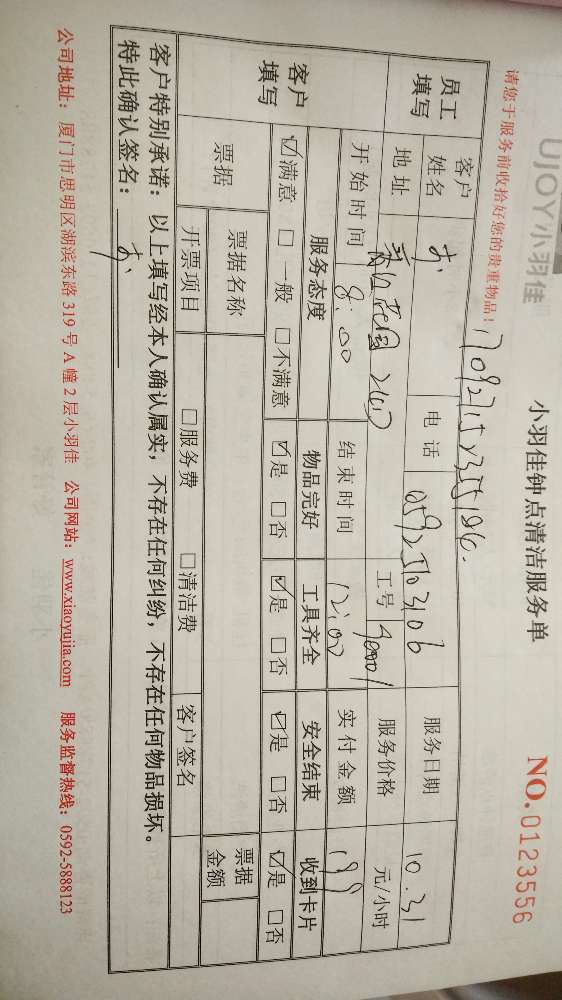 UJOY小羽佳
小羽佳钟点清洁服务单
NO.0123556
请您于服务前收拾好您的贵重物品！
员工填写
客户姓名
电话
服务日期 10.31
地址
工号
服务价格 元/小时
开始时间 8:00
结束时间 12:00
实付金额
客户填写
服务态度 物品完好 工具齐全 安全结束 收到卡片
☑满意 □一般 □不满意 ☑是 □否 ☑是 □否 ☑是 □否 ☑是 □否
票据
票据名称
票据金额
开票项目 □服务费 □清洁费 客户签名
客户特别承诺：以上填写经本人确认属实，不存在任何纠纷，不存在任何物品损坏。
特此确认签名：
公司地址：厦门市思明区湖滨东路 319 号 A 幢 2 层小羽佳 公司网站：www.xiaoyujia.com 服务监督热线：0592-5888123